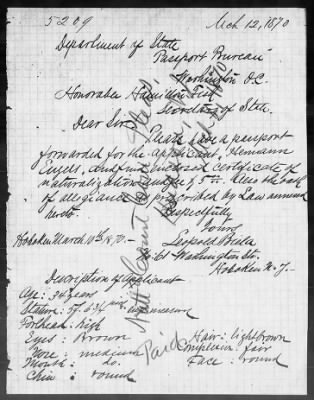 5209
Mch 12, 1870
Department of State
Passport Bureau
Washington D.C.
Honorable Hamilton Fish
Secretary of State.
Dear Sir
Please have a passport
forwarded for the applicant, Hermann
Engels. And find enclosed Certificate of
naturalization and $ 5 00. Also the oath
of allegiance as prescribed by Law annexed
hereto.
Respectfully
Yours
Leopold
Hoboken March 11th 1870.—
Washington St.
Hoboken N. J.
Description of Applicant
Age: 34 years
Stature: 5f. 6 3/4 measure
Forehead: high
Eyes: Brown
Nose: medium
Mouth: do.
Chin: round
Hair: light brown
Complexion: fair
Face: round
Natl
Paid